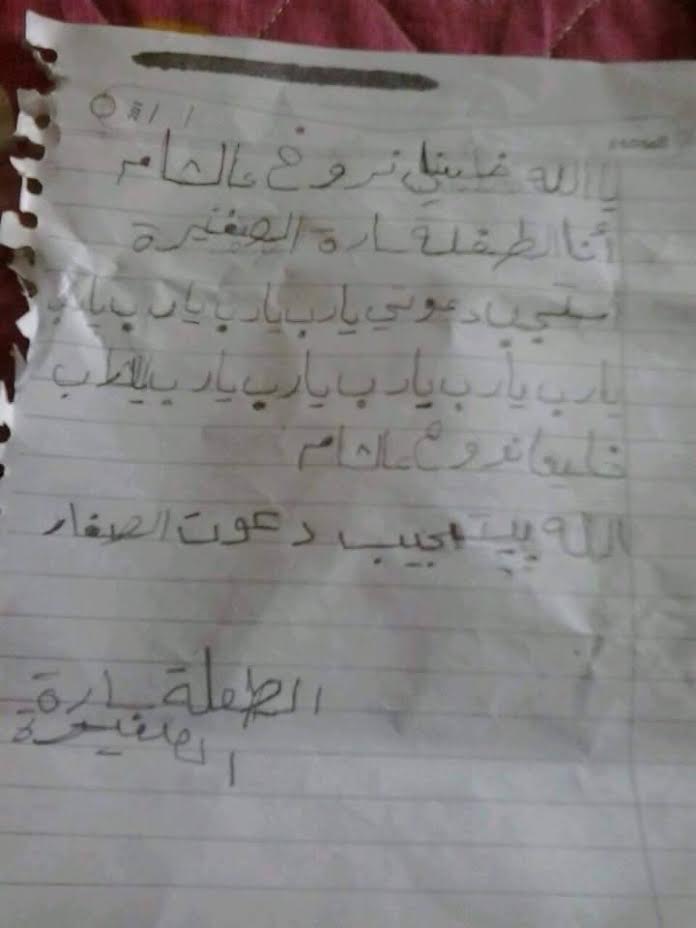 يا الله خليني نروح عالشام
أنا الطفلة سارة الصغيرة
دعوتي يارب يارب يارب يارب
يارب يارب يارب يارب يارب
خلينا نروح عالشام
الله يستجيب دعوت الصغار
الطفلة سارة
الصغيرة